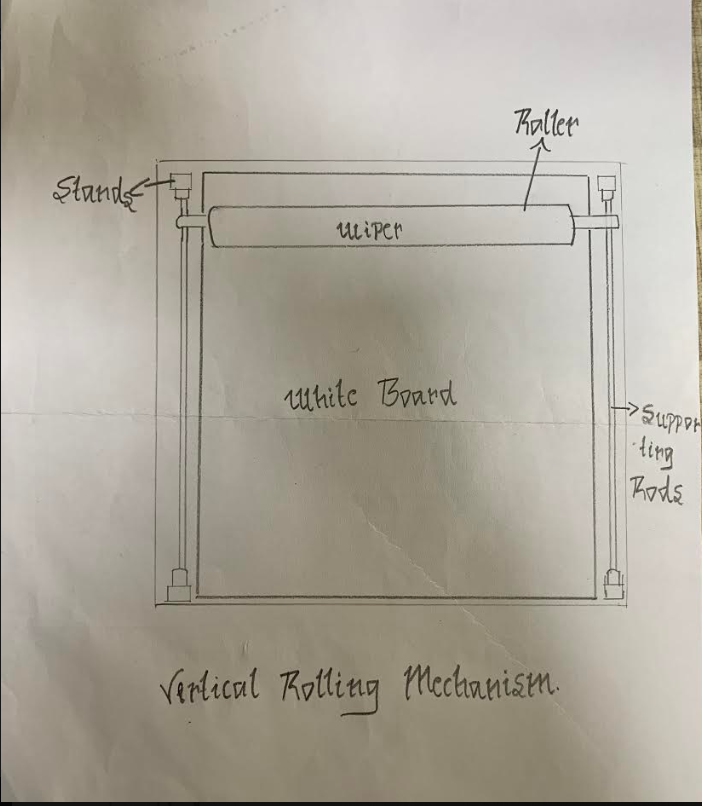 Roller
Stands
Wiper
White Board
Suppor
ting
Rods
Vertical Rolling Mechanism.